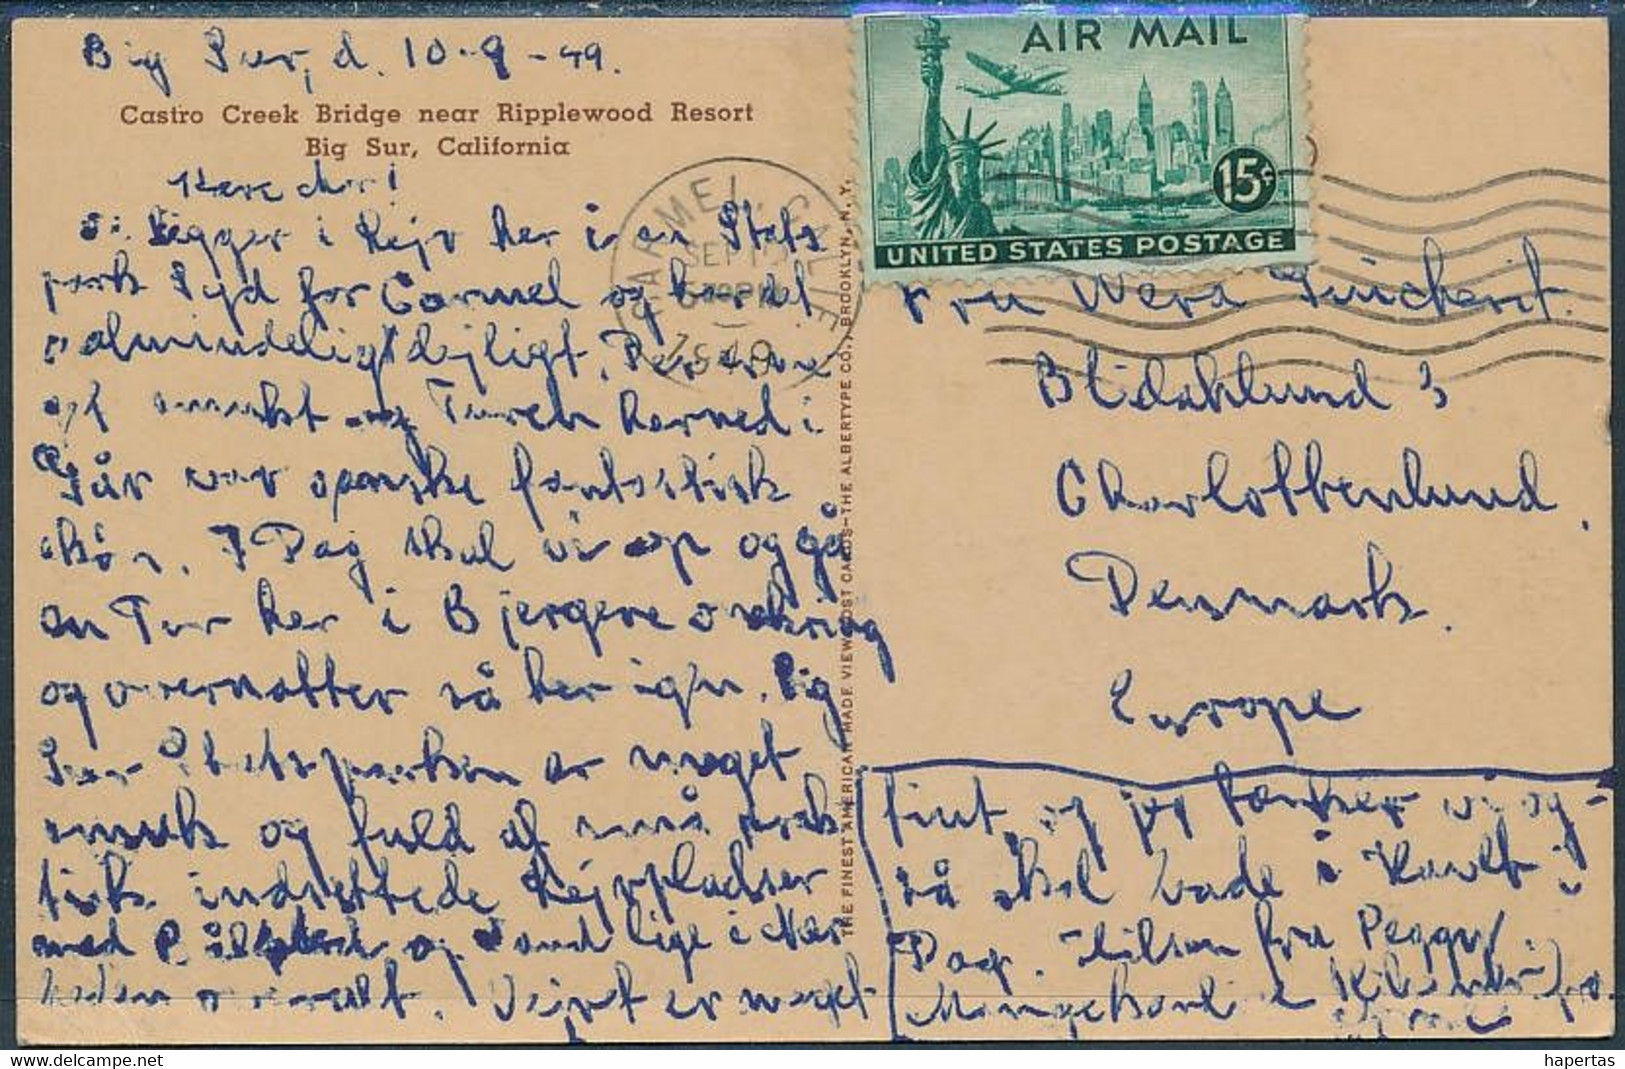 Big Sur, d. 10-9-49.
Castro Creek Bridge near Ripplewood Resort
Big Sur, California
Kære Mor!
Vi ligger i Lejr her i en Stats
park Syd for Carmel og har det
ualmindeligt dejligt.
og Turen herned i
Gaar var ganske fantastisk
skøn. I Dag skal vi op og gå
en Tur her i Bjergene omkring
og overnatter så her igen. Big
Sur Statsparken er meget
smuk og fuld af små prak
tisk indrettede Lejrpladser
med Bålsted og Vand lige i Nær
heden overalt. Vejret er meget
fint, og jeg tænker vi og-
så skal bade i Havet i
Dag. Hilsen fra Peggy.
AIR MAIL
15¢
UNITED STATES POSTAGE
CARMEL, CALIF.
SEP
1949
Fru Wera
Blidahlund 3
Charlottenlund.
Denmark.
Europe
THE FINEST AMERICAN MADE VIEW POST CARDS—THE ALBERTYPE CO., BROOKLYN, N. Y.
hapertas